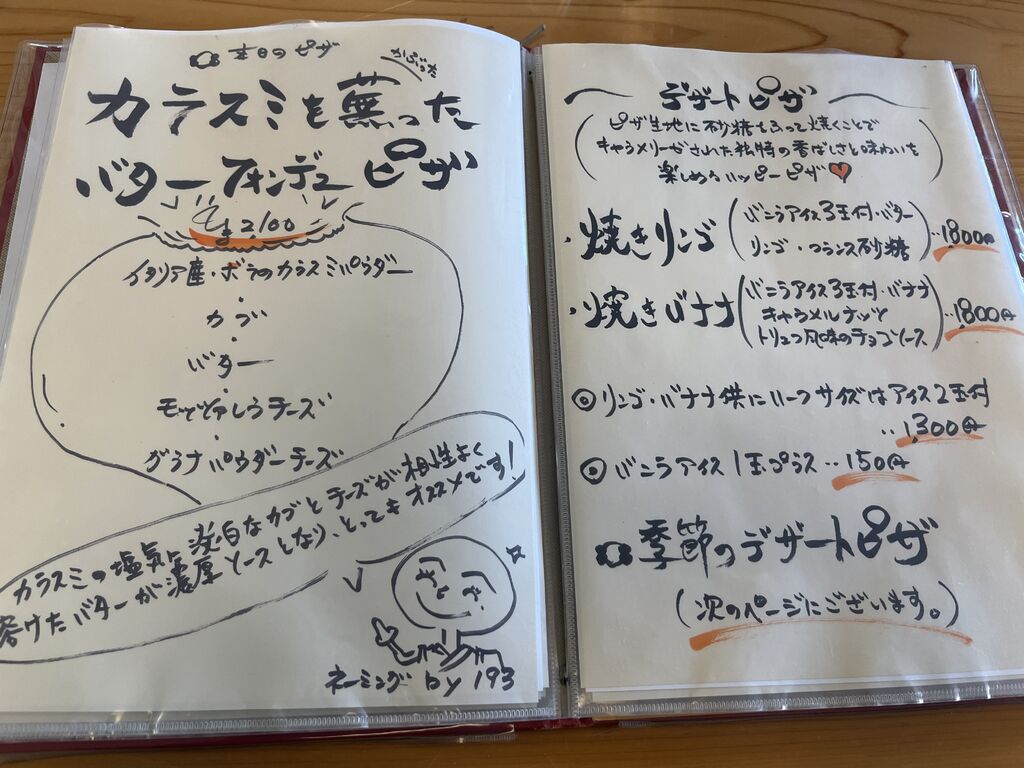 本日のピザ
かぶった
カラスミを蕪った
バターフォンデュ ピザ
2100
イタリア産・ボラのカラスミパウダー
・
カブ
・
バター
・
モッツァレラチーズ
・
グラナパウダーチーズ
カラスミの塩気と淡白なカブとチーズが相性よく
溶けたバターが濃厚ソースとなり、とってもオススメです!
ネーミング by 193
デザートピザ
(ピザ生地に砂糖をふって焼くことで
キャラメリーゼされた独特の香ばしさと味わいを
楽しめるハッピーピザ)
・焼きリンゴ (バニラアイス3玉付・バター
リンゴ・フランス砂糖) ‥1800円
・焼きバナナ (バニラアイス3玉付・バナナ
キャラメルナッツと
トリュフ風味のチョコソース) ‥1800円
◎リンゴ・バナナ供にハーフサイズはアイス2玉付
‥1,300円
◎バニラアイス1玉プラス‥150円
季節のデザートピザ
(次のページにございます。)